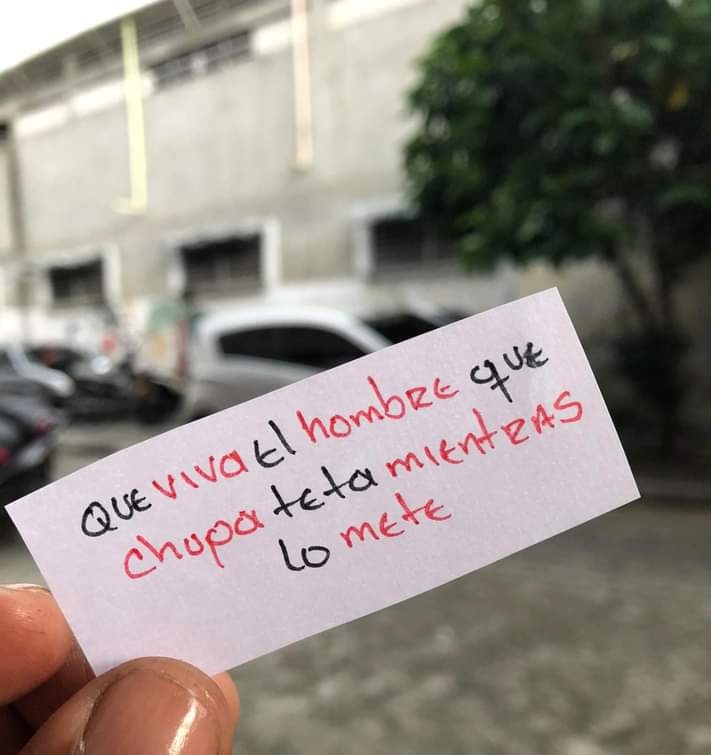 QUE VIVA El hombRE que
chupa teta mientRAS
lo mete